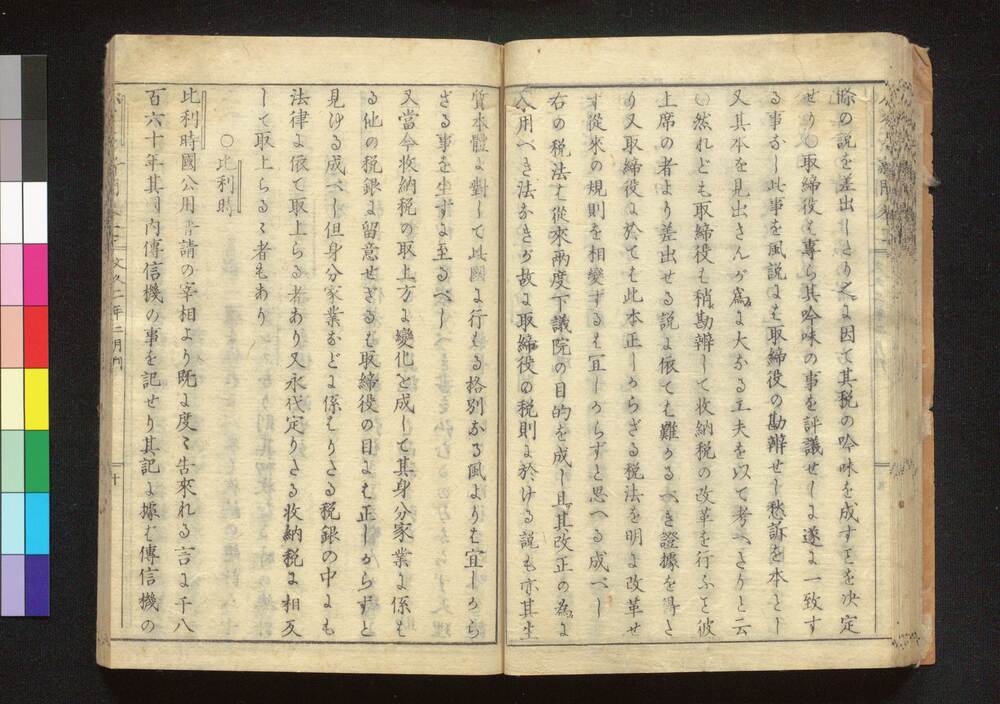 除の説を差出しさり之に因て其税の吟味を成すヿを決定
せり○取締役も専ら其吟味の事を評議せしに遂に一致す
る事なし此事を風説にも取締役の勘辨せし愁訴を本とし
又其本を見出さんが為に大なる工夫を以て考へさりと云
○然れども取締役も稍勘辨して收納税の改革を行ふヿ彼
上席の者より差出せる説に依ても難かるべき證據を得と
り又取締役に於ても此本正しからざる税法を明に改革せ
ず從來の規則を相變するも宜しからずと思へる成べし
右の税法も從來兩度下議院の目的を成し且其改正の為に
入用べき法なきが故に取締役の税則に於ける説も亦其生
質本體に對して此國に行もる格別なる風よりも宜しから
ざる事を生ずに至るべし
又當今收納税の取上方に變化を成して其身分家業に係も
る他の税銀に留意せざるも取締役の目にも正しからずと
見ける成べし但身分家業などに係もりさる税銀の中にも
法律に依て取上らる者あり又永代定りさる收納税に相反
して取上らるゝ者もあり
○比利時
比利時國公用普請の宰相より既に度々告來れる言に千八
百六十年其國内傳信機の事を記せり其記に據も傳信機の
文久二年二月
十